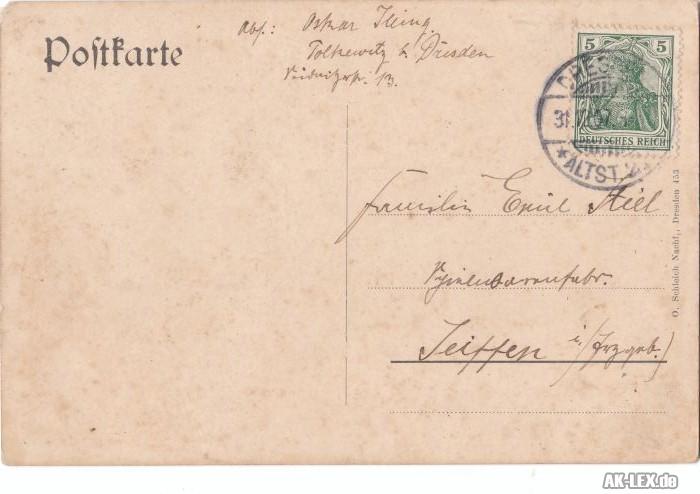 Postkarte
Abs.: Oskar
Tolkewitz b Dresden
13.
5 5
DEUTSCHES REICH
DRESDEN
31. 07
*ALTST.
Familie Emil
Spielwarenfabr.
Seiffen i/Erzgeb.)
O. Schleich Nachf., Dresden 453
AK-LEX.de